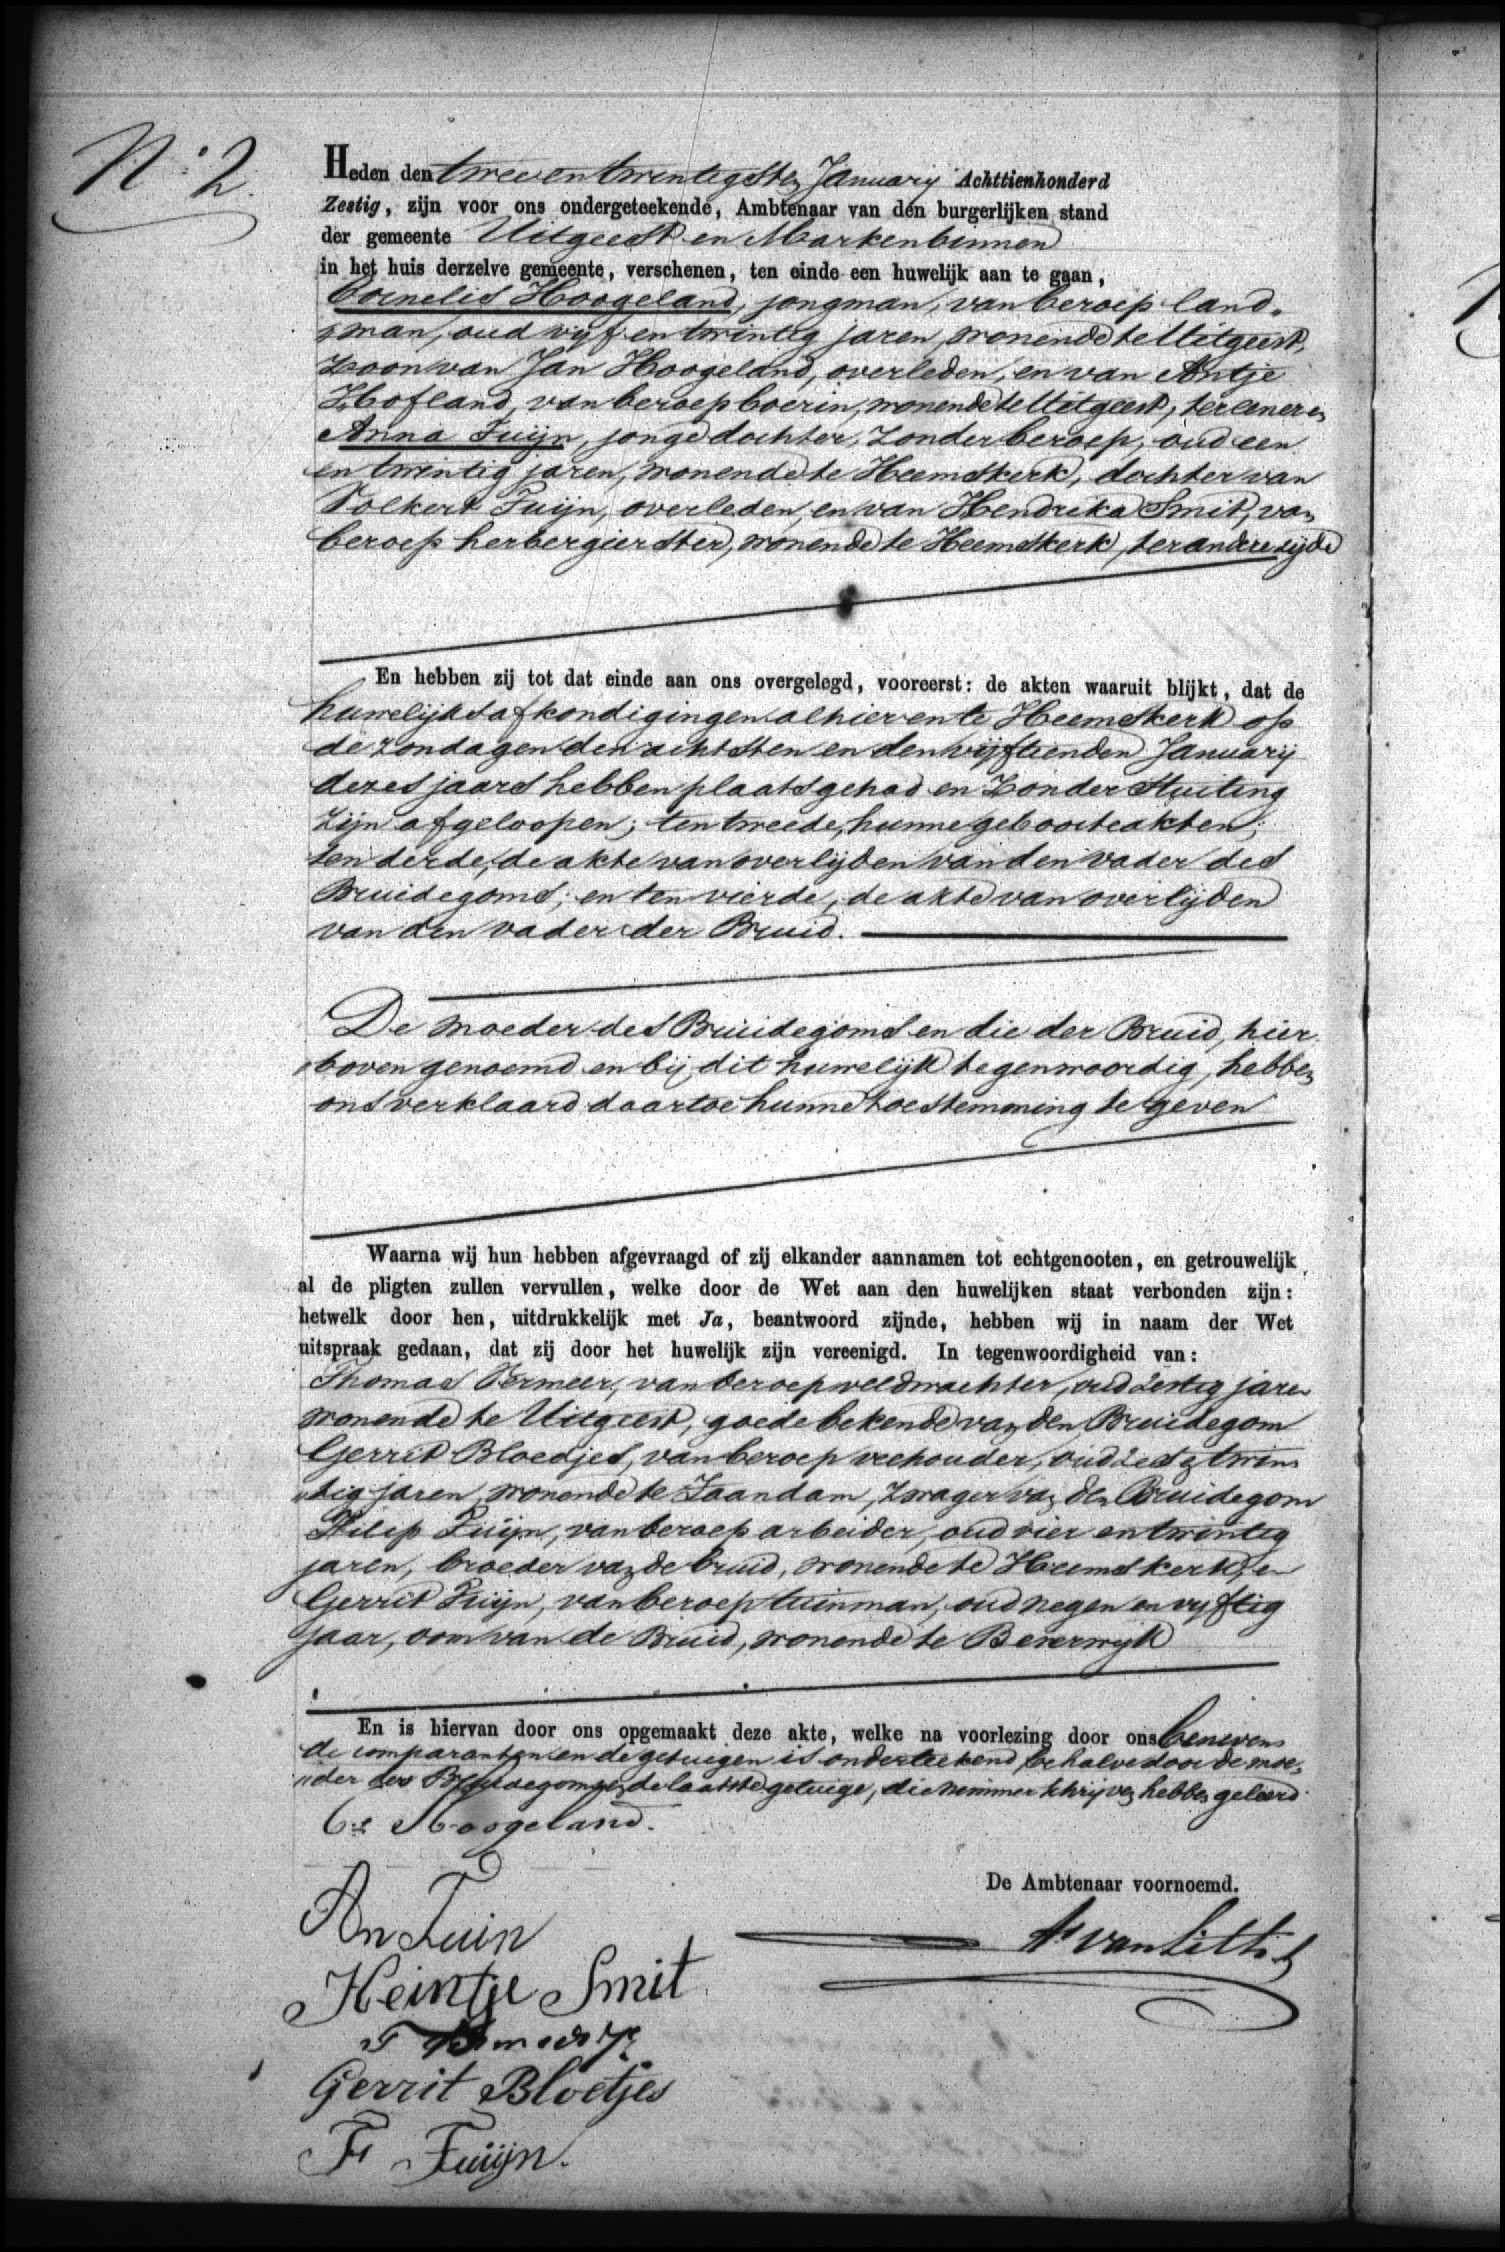 No 2.
Heden den twee en twintigsten January Achttienhonderd
Zestig, zijn voor ons ondergeteekende, Ambtenaar van den burgerlijken stand
der gemeente Uitgeest en Markenbinnen
in het huis derzelve gemeente, verschenen, ten einde een huwelijk aan te gaan,
Cornelis Hoogeland, jongman, van beroep land„
„man, oud vijf en twintig jaren, wonende te Uitgeest,
Zoon van Jan Hoogeland, overleden, en van Antje
Hofland, van beroep boerin, wonende te Uitgeest, ter eenere en
Anna Tuijn, jonge dochter, zonder beroep, oud een
en twintig jaren, wonende te Heemskerk, dochter van
Volkert Tuijn, overleden, en van Hendrika Smit, van
beroep herbergierster, wonende te Heemskerk, ter andere zijde
En hebben zij tot dat einde aan ons overgelegd, vooreerst: de akten waaruit blijkt, dat de
huwelijksafkondigingen alhier en te Heemskerk op
de zondagen den achtsten en den vijftienden January
dezes jaars hebben plaats gehad en zonder stuiting
zijn afgeloopen; ten tweede, hunne geboorteakten;
ten derde, de akte van overlijden van den vader des
Bruidegoms; en ten vierde, de akte van overlijden
van den vader der Bruid.
De moeder des Bruidegoms en die der Bruid, hier
„boven genoemd en bij dit huwelijk tegenwoordig, hebben
ons verklaard daartoe hunne toestemming te geven
Waarna wij hun hebben afgevraagd of zij elkander aannamen tot echtgenooten, en getrouwelijk
al de pligten zullen vervullen, welke door de Wet aan den huwelijken staat verbonden zijn:
hetwelk door hen, uitdrukkelijk met Ja, beantwoord zijnde, hebben wij in naam der Wet
uitspraak gedaan, dat zij door het huwelijk zijn vereenigd. In tegenwoordigheid van:
Thomas Vermeer, van beroep veldwachter, oud zestig jaren
wonende te Uitgeest, goede bekende van den Bruidegom
Gerrit Bloedjes, van beroep veehouder, oud zes en twin„
„tig jaren wonende te Zaandam, zwager van den Bruidegom
Filip Tuijn, van beroep arbeider, oud vier en twintig
jaren, broeder van de bruid, wonende te Heemskerk, en
Gerrit Tuijn, van beroep tuinman, oud negen en vyftig
jaar, oom van de Bruid, wonende te Beverwyk
En is hiervan door ons opgemaakt deze akte, welke na voorlezing door ons benevens
de comparanten en de getuigen is onderteekend, behalve door de moe„
„der des Bruidegoms en de laatste getuige, die nimmer schrijven hebben geleerd.
Cs Hoogeland.
De Ambtenaar voornoemd.
An Tuin
Heintje Smit
Gerrit Bloetjes
F Tuijn.